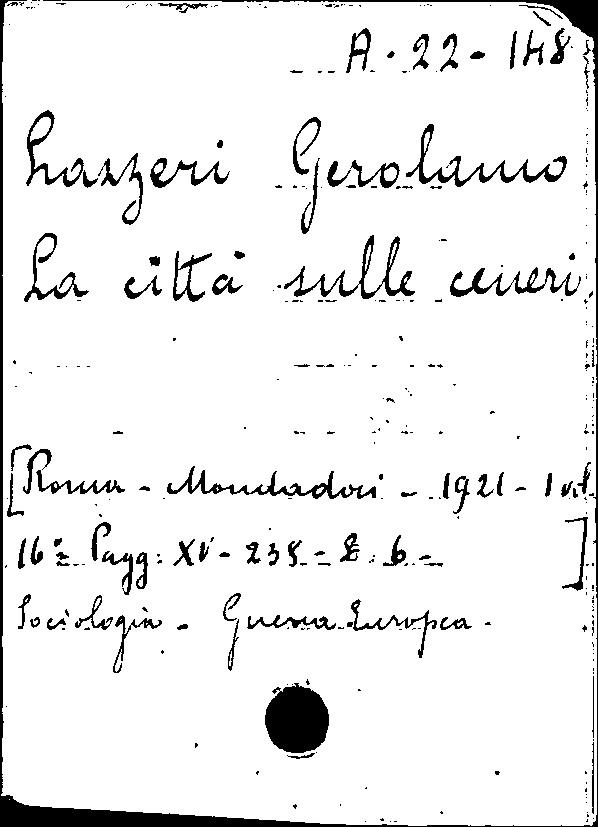 A. 22 - 148
Lazzeri Gerolamo
La città sulle ceneri.
[Roma - Mondadori - 1921 - 1 vol
16° Pagg: XV - 235 - L. 6 - ]
Sociologia - Guerra Europea.